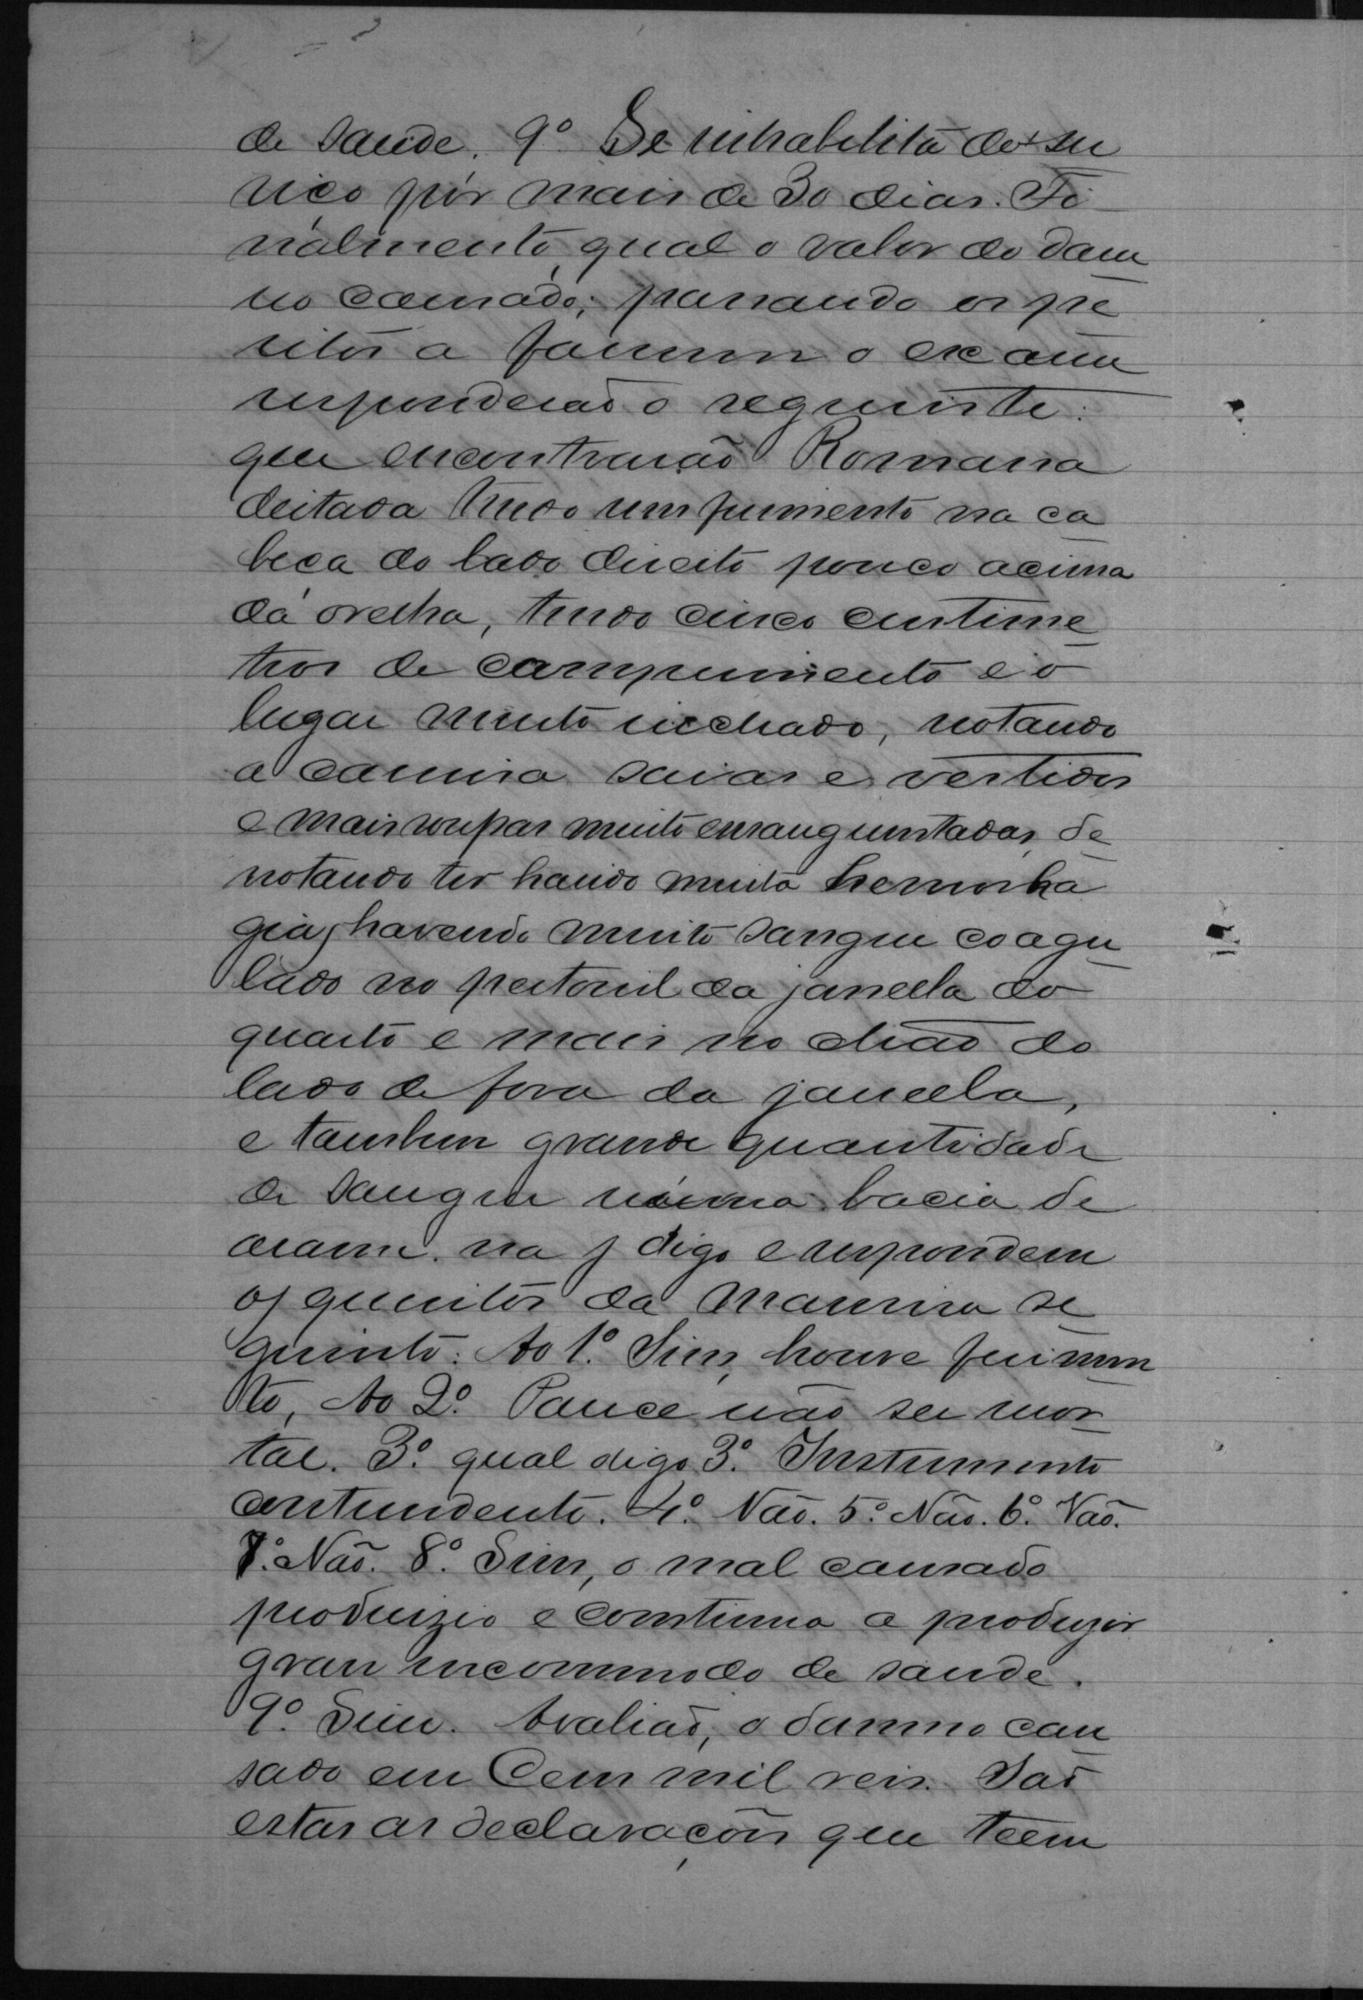 de saude. 9º Se inhabilita de ser
viço por mais de 30 dias. Fi
nalmente, qual o valor do dam
no causado; passando os pe
ritos a fazerem o exame
responderão o seguinte:
que encontrarão Romana
deitada tendo um ferimento na ca
beça do lado direito pouco acima
da orelha, tendo cinco centime
tros de comprimento e o
lugar muito inchado, notando
a camisa saias e vestidos
e mais roupas muito ensanguentadas, de
notando ter havido muita hemorrha
gia, havendo muito sangue coagu
lado no peitoril da janella do
quarto e mais no chão do
lado de fora da janella,
e tambem grande quantidade
de sangue numa bacia de
arame. na j digo e respondem
os quesitos da maneira se
guinte: Ao 1º. Sim, houve ferimen
to, Ao 2º. Parece não ser mor
tal. 3º. qual digo 3º. Instrumento
contundente. 4º. Não. 5º. Não. 6º. Não.
7º. Não. 8º. Sim, o mal causado
produzio e continua a produzir
grave incommodo de saude.
9º. Sim. Avalião, o damno cau
sado em Cem mil reis. São
estas as declarações que teem